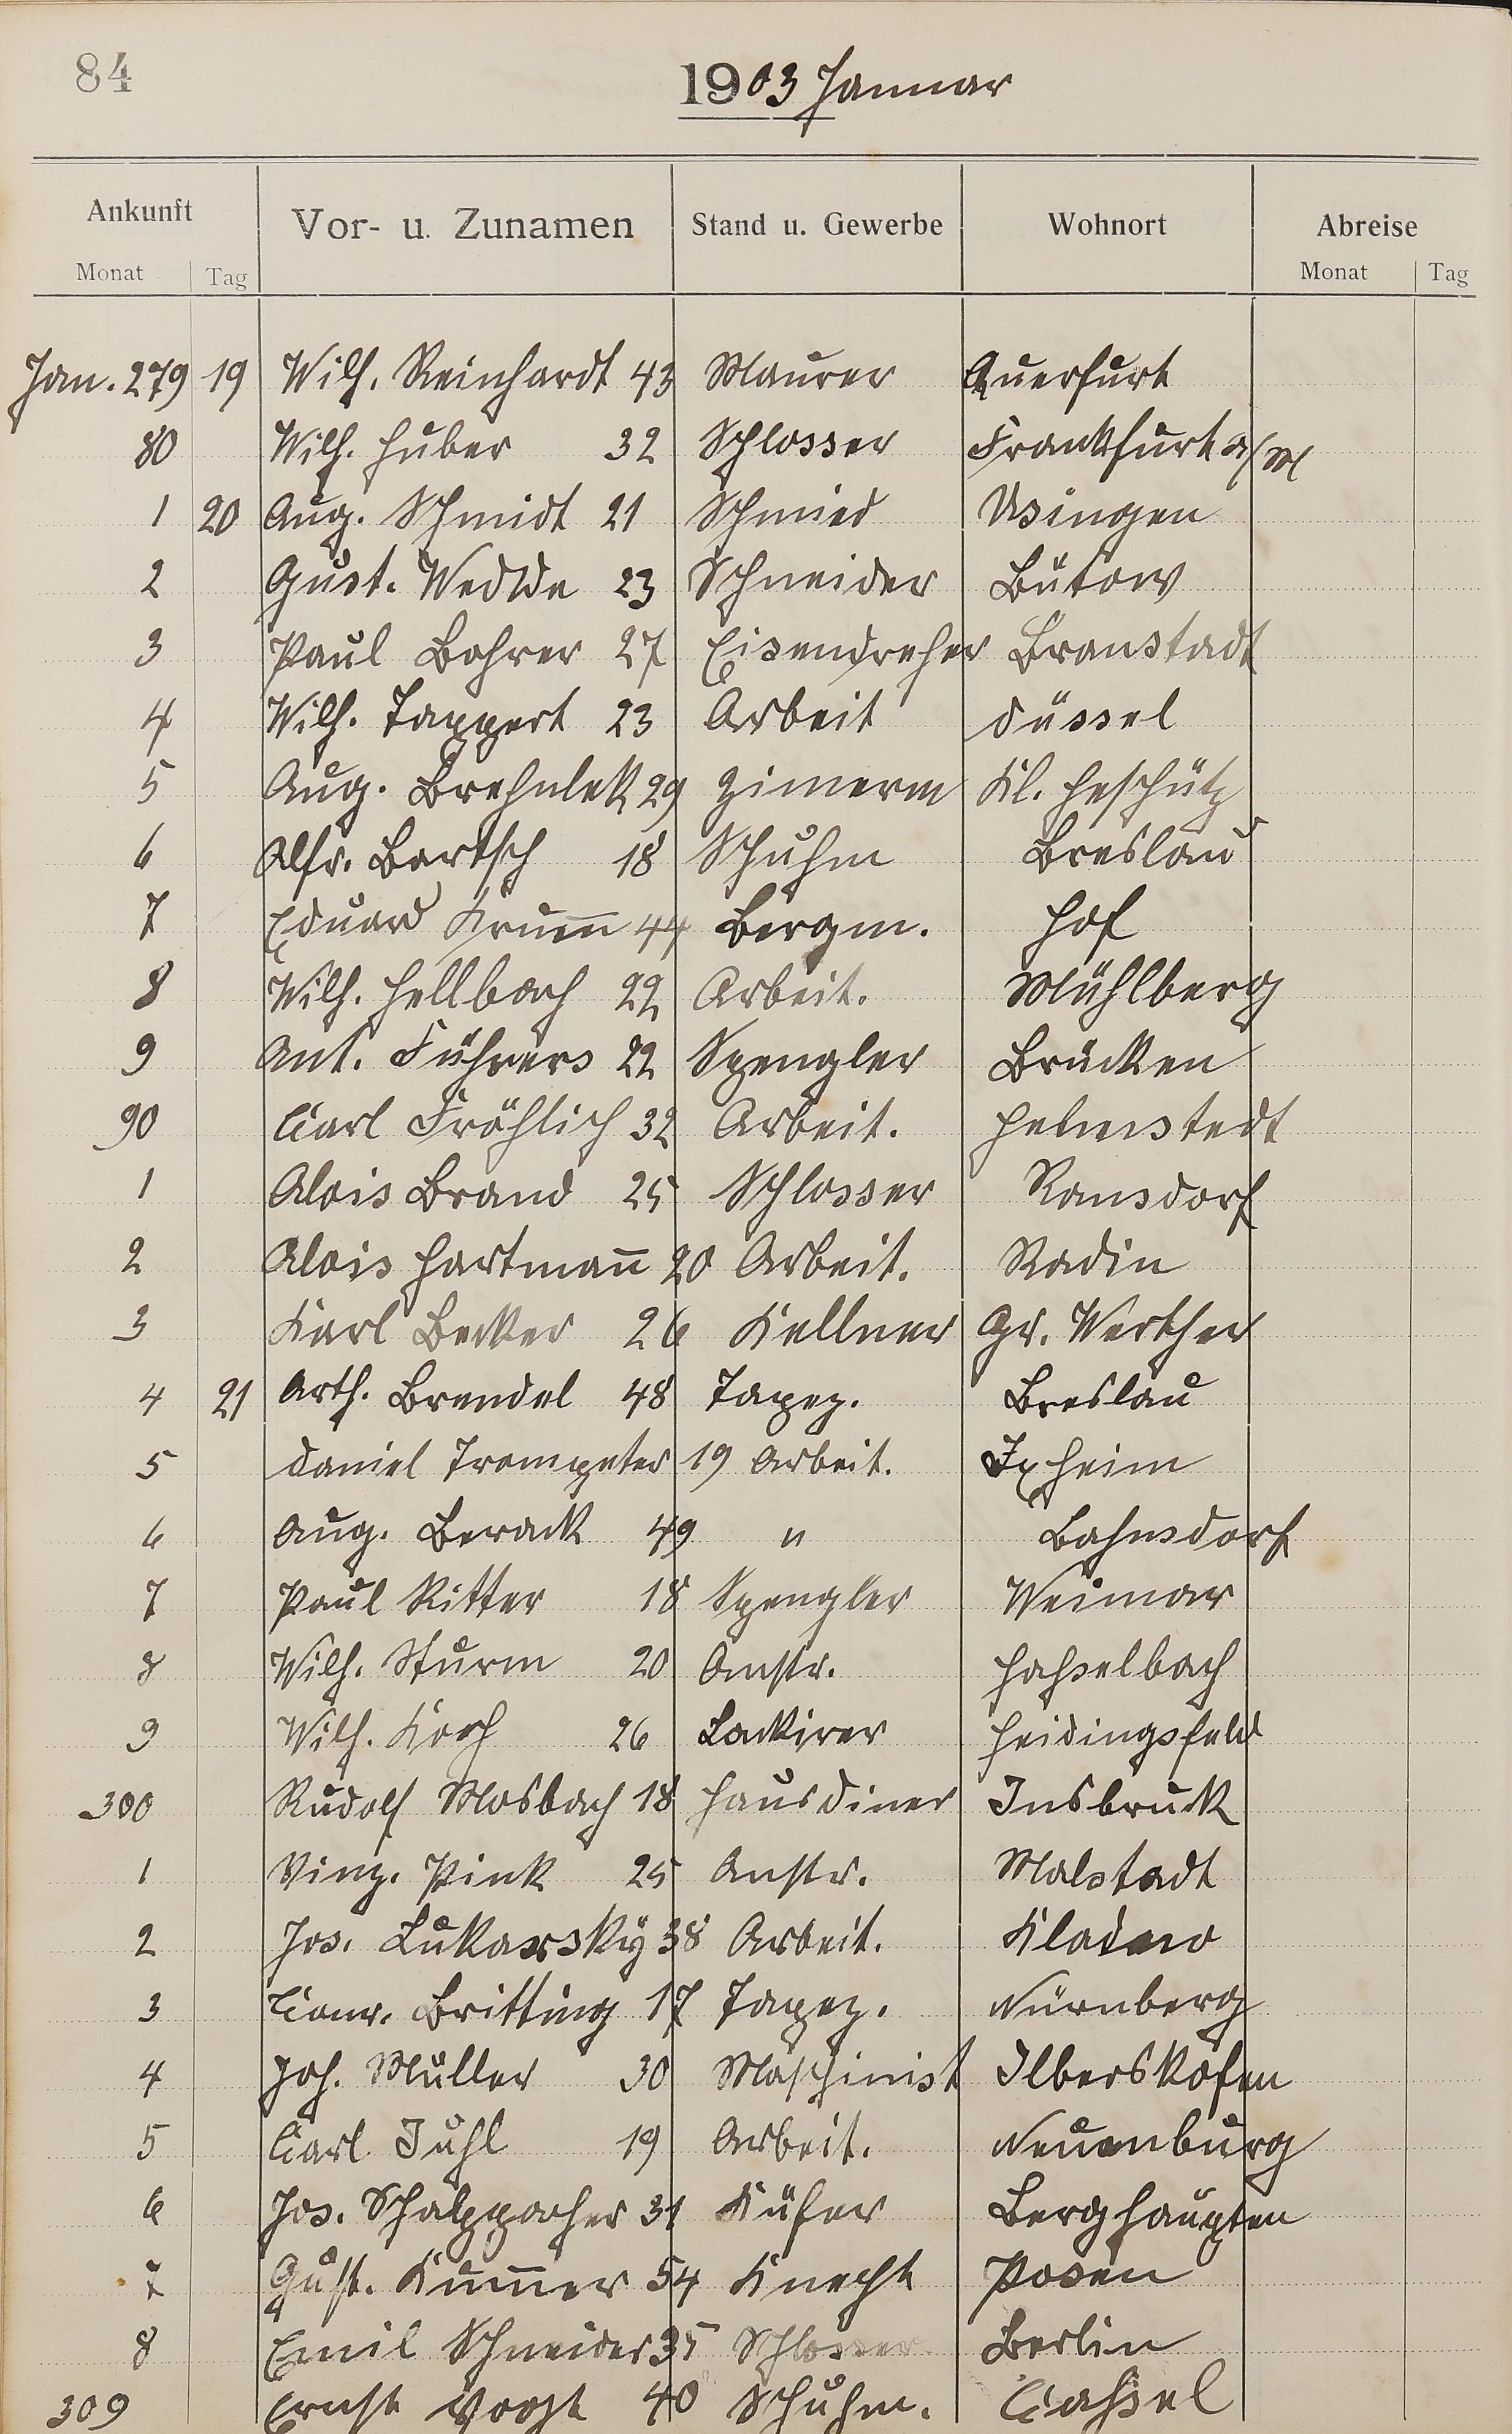 84
1903 Januar
Ankunft Vor- u. Zunamen Stand u. Gewerbe Wohnort Abreise
Monat Tag Monat Tag
Jan. 279 19 Wilh. Reinhardt 43 Maurer Querfurt
80 Wilh. Huber 32 Schlosser Frankfurt a/M
1 20 Aug. Schmidt 21 Schmied Usingen
2 Gust. Wedde 23 Schneider Bütow
3 Paul Bohrer 27 Eisendreher Braustadt
4 Wilh. Tappert 23 Arbeit Düssel
5 Aug. 29 Zimerm Kl. Heschütz
6 Alfr. Bartsch 18 Schuhm Breslau
7 Eduard Krum̄ 44 Bergm. Hof
8 Wilh. Hellbach 22 Arbeit. Mühlberg
9 Ant. Führers 22 Spengler Brücken
90 Carl Fröhlich 32 Arbeit. Helmstedt
1 Alois Brand 25 Schlosser Ransdorf
2 Alois Hartman̄ 20 Arbeit. Radin
3 Karl Becker 26 Kellner Gr. Werther
4 21 Arth. Brendel 48 Tapez. Breslau
5 Daniel Trompeter 19 Arbeit. Ixheim
6 Aug. Berack 49 " Bahnsdorf
7 Paul Ritter 18 Spengler Weimar
8 Wilh. Sturm 20 Anstr. Haßelbach
9 Wilh. Koch 26 Lackirer Heidingsfeld
300 Rudolf Mosbach 18 Hausdiner Insbruck
1 Vinz. Pink 25 Anstr. Malstadt
2 Jos. Lukawsky 38 Arbeit. Kladno
3 Conr. Britting 17 Tapez. Nürnberg
4 Joh. Müller 30 Maschinist Ilberskofen
5 Carl Juhl 19 Arbeit. Neuenburg
6 Jos. Schalppacher 31 Küfer Berghaupten
7 Gust. Kum̄er 54 Knecht Posen
8 Emil Schneider 35 Schlosser Berlin
309 Ernst Voogt 40 Schuhm. Caßel